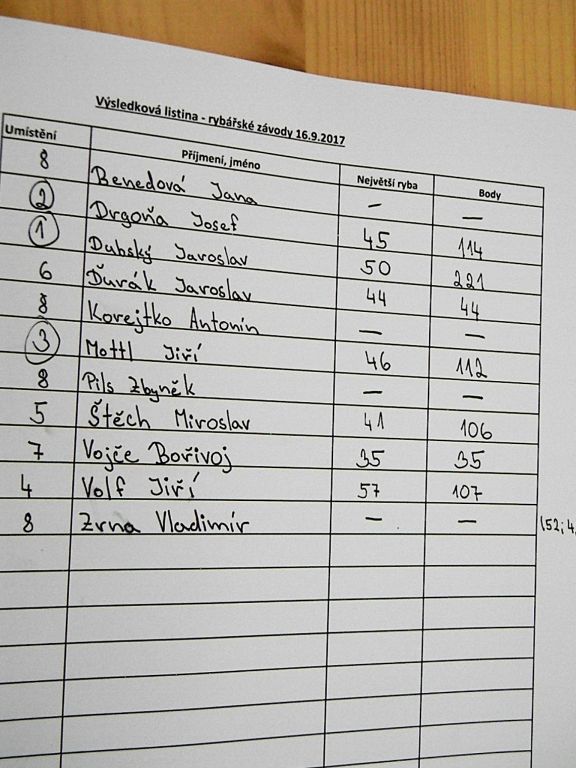 Výsledková listina - rybářské závody 16.9.2017
Umístění Příjmení, jméno Největší ryba Body
8 Benedová Jana — —
2 Drgoňa Josef 45 114
1 Dubský Jaroslav 50 221
6 Ďurák Jaroslav 44 44
8 Korejtko Antonín — —
3 Mottl Jiří 46 112
8 Pils Zbyněk — —
5 Štěch Miroslav 41 106
7 Vojče Bořivoj 35 35
4 Volf Jiří 57 107
8 Zrna Vladimír — — (52; 4,